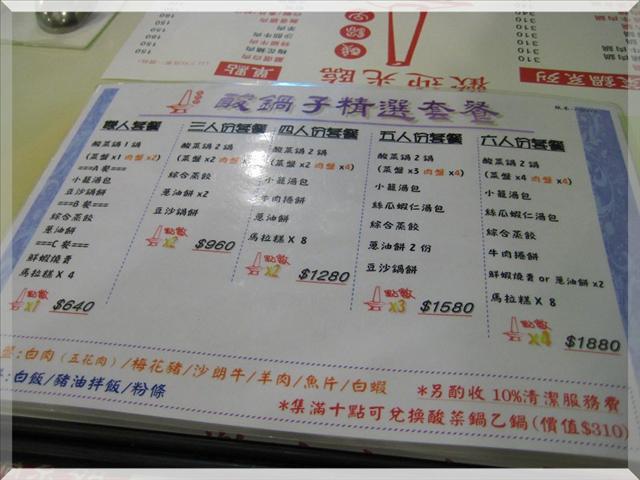 歡迎光臨
單點
酸鍋子精選套餐
雙人套餐
酸菜鍋 1 鍋
(菜盤 x1 肉盤 x2)
===A 餐===
小籠湯包
豆沙鍋餅
===B 餐===
綜合蒸餃
蔥油餅
===C 餐===
鮮蝦燒賣
馬拉糕 X 4
點數 x1 $640
三人份套餐
酸菜鍋 2 鍋
綜合蒸餃
蔥油餅 x2
豆沙鍋餅
點數 x2 $960
四人份套餐
酸菜鍋 2 鍋
(菜盤 x2 肉盤 x4)
小籠湯包
牛肉捲餅
蔥油餅
馬拉糕 X 8
點數 x2 $1280
五人份套餐
酸菜鍋 2 鍋
(菜盤 x3 肉盤 x4)
小籠湯包
絲瓜蝦仁湯包
綜合蒸餃
蔥油餅 2 份
豆沙鍋餅
點數 x3 $1580
六人份套餐
酸菜鍋 2 鍋
(菜盤 x4 肉盤 x4)
小籠湯包
絲瓜蝦仁湯包
綜合蒸餃
牛肉捲餅
鮮蝦燒賣 or 蔥油餅 x2
馬拉糕 X 8
點數 x4 $1880
盤:白肉(五花肉)/梅花豬/沙朗牛/羊肉/魚片/白蝦
:白飯/豬油拌飯/粉條
*另酌收 10%清潔服務費
*集滿十點可兌換酸菜鍋乙鍋(價值$310)